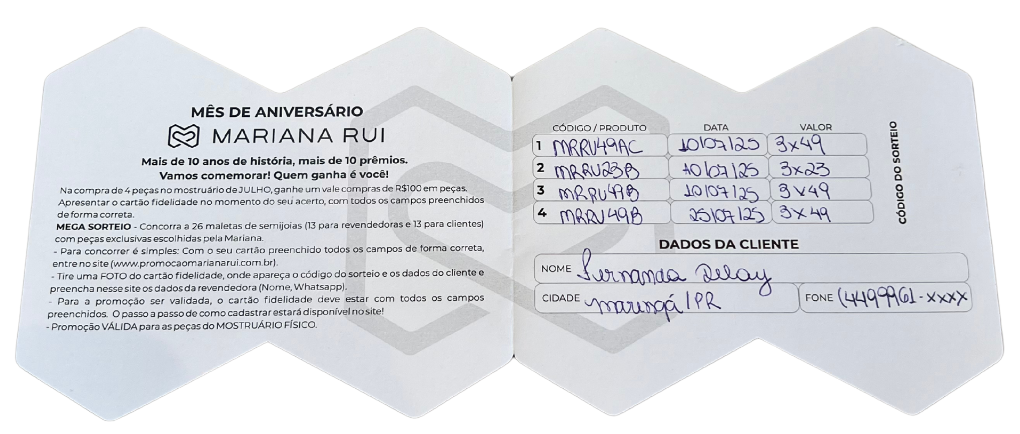 MÊS DE ANIVERSÁRIO
MARIANA RUI
Mais de 10 anos de história, mais de 10 prêmios.
Vamos comemorar! Quem ganha é você!
Na compra de 4 peças no mostruário de JULHO, ganhe um vale compras de R$100 em peças.
Apresentar o cartão fidelidade no momento do seu acerto, com todos os campos preenchidos
de forma correta.
MEGA SORTEIO - Concorra a 26 maletas de semijoias (13 para revendedoras e 13 para clientes)
com peças exclusivas escolhidas pela Mariana.
- Para concorrer é simples: Com o seu cartão preenchido todos os campos de forma correta,
entre no site (www.promocaomarianarui.com.br).
- Tire uma FOTO do cartão fidelidade, onde apareça o código do sorteio e os dados do cliente e
preencha nesse site os dados da revendedora (Nome, Whatsapp).
- Para a promoção ser validada, o cartão fidelidade deve estar com todos os campos
preenchidos. O passo a passo de como cadastrar estará disponível no site!
- Promoção VÁLIDA para as peças do MOSTRUÁRIO FÍSICO.
CÓDIGO / PRODUTO DATA VALOR
1 MRRU49AC 10/07/25 3x49
2 MRRU23B 10/07/25 3x23
3 MRRU49B 10/07/25 3x49
4 MRRU49B 25/07/25 3x49
CÓDIGO DO SORTEIO
DADOS DA CLIENTE
NOME Fernanda Delay
CIDADE Maringá/PR FONE (4499961-xxxx